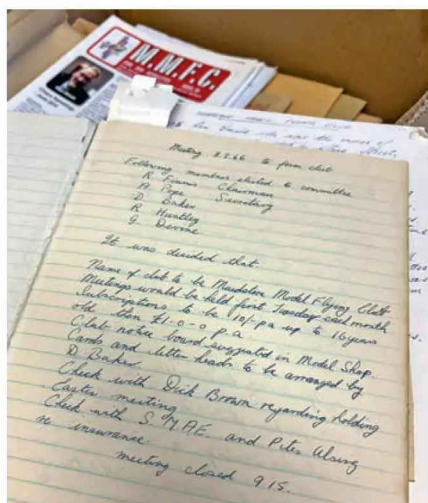 M.M.F.C.
Meeting 8.2.66 to form club
Following members elected to committee
R. Finnis Chairman
A Pope Secretary
D. Baker
R. Huntley
G. Devine
It was decided that.
Name of club to be Maidstone Model Flying Club
Meetings would be held first Tuesday each month
Subscriptions to be 10/- pa up to 16 years
old then £1-0-0 p.a
Club notice board suggested in Model Shop
Cards and letter heads to be arranged by
D Baker.
Check with Dick Brown regarding holding
Easter meeting
Check with S.M.A.E. and Pete
re insurance
meeting closed 9 15.